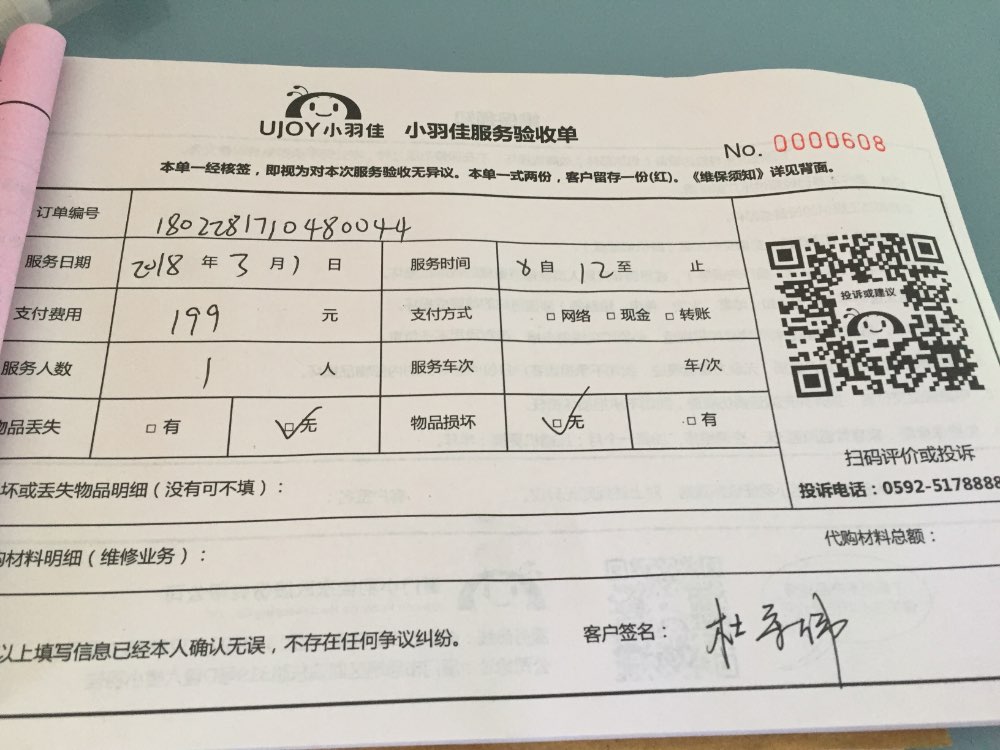 UJOY小羽佳 小羽佳服务验收单
No. 0000608
本单一经核签，即视为对本次服务验收无异议。本单一式两份，客户留存一份(红)。《维保须知》详见背面。
订单编号 1802281710480044
服务日期 2018 年 3 月 1 日 服务时间 8 自 12 至 止
支付费用 199 元 支付方式 □ 网络 □ 现金 □ 转账
服务人数 1 人 服务车次 车/次
品丢失 □ 有 □ 无 物品损坏 □ 无 □ 有
投诉或建议
扫码评价或投诉
投诉电话：0592-5178888
坏或丢失物品明细（没有可不填）：
购材料明细（维修业务）： 代购材料总额：
以上填写信息已经本人确认无误，不存在任何争议纠纷。 客户签名：